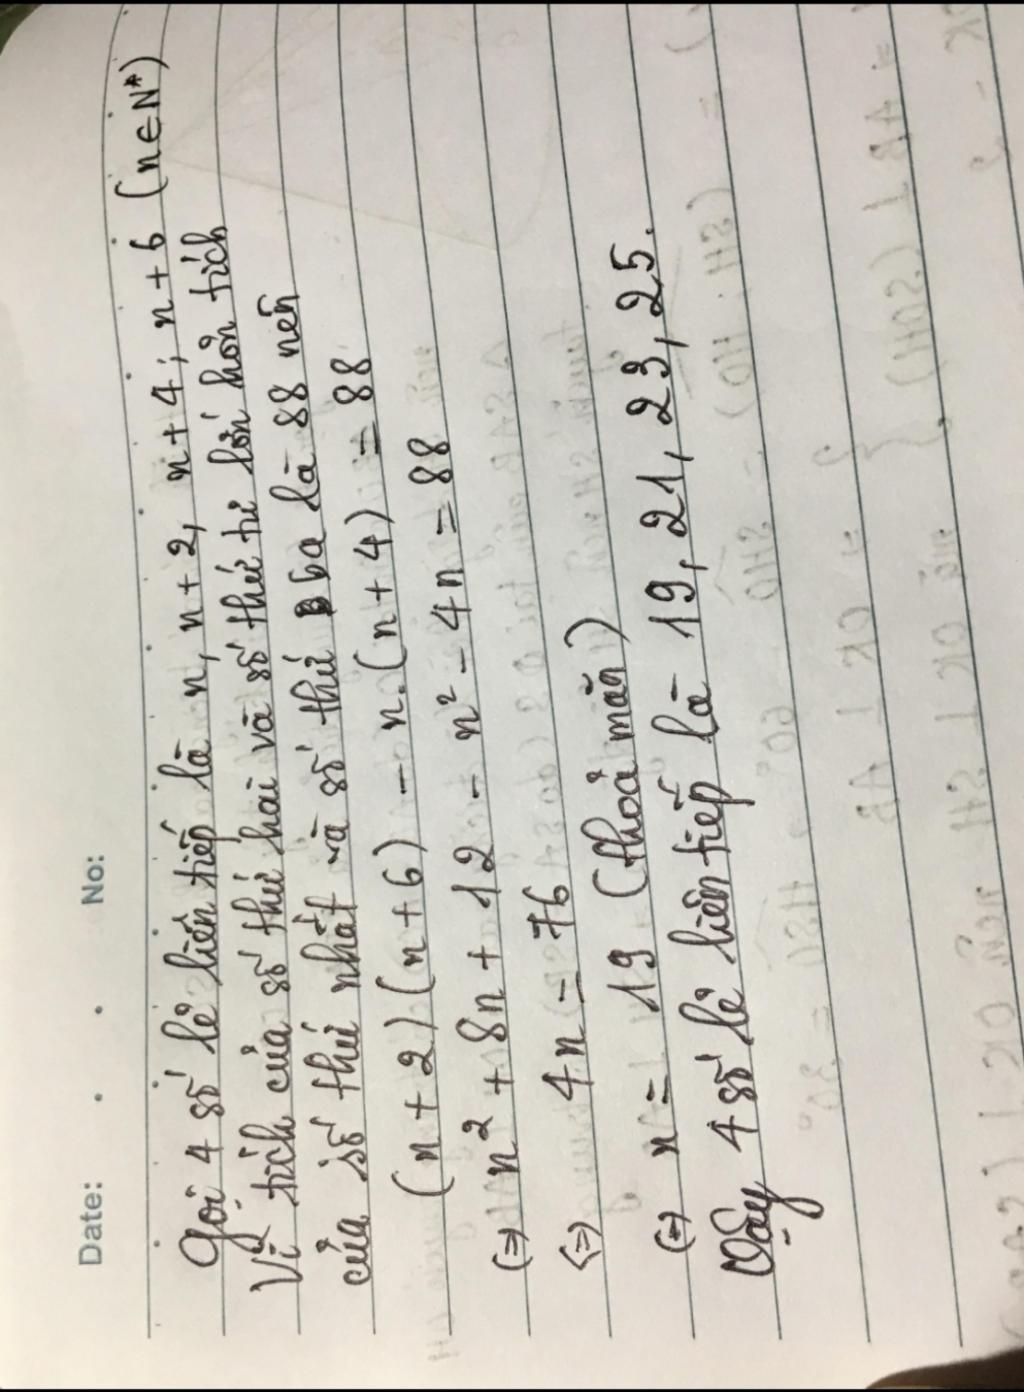 Date: No:
Gọi 4 số lẻ liên tiếp là n, n + 2, n + 4; n + 6 (n ∈ N*)
Vì tích của số thứ hai và số thứ tư lớn hơn tích
của số thứ nhất và số thứ ba là 88 nên
(n + 2) (n + 6) - n. (n + 4) = 88
(=) n² + 8n + 12 - n² - 4n = 88
(=) 4n = 76
(=) n = 19 (thoả mãn)
Vậy 4 số lẻ liên tiếp là 19, 21, 23, 25.